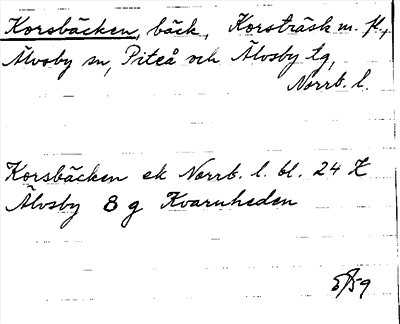 Korsbäcken, bäck, Korsträsk m. fl.,
Älvsby sn, Piteå och Älvsby tg,
Norrb. l.
Korsbäcken ek Norrb. l. bl. 24 H
Älvsby 8 g Kvarnheden